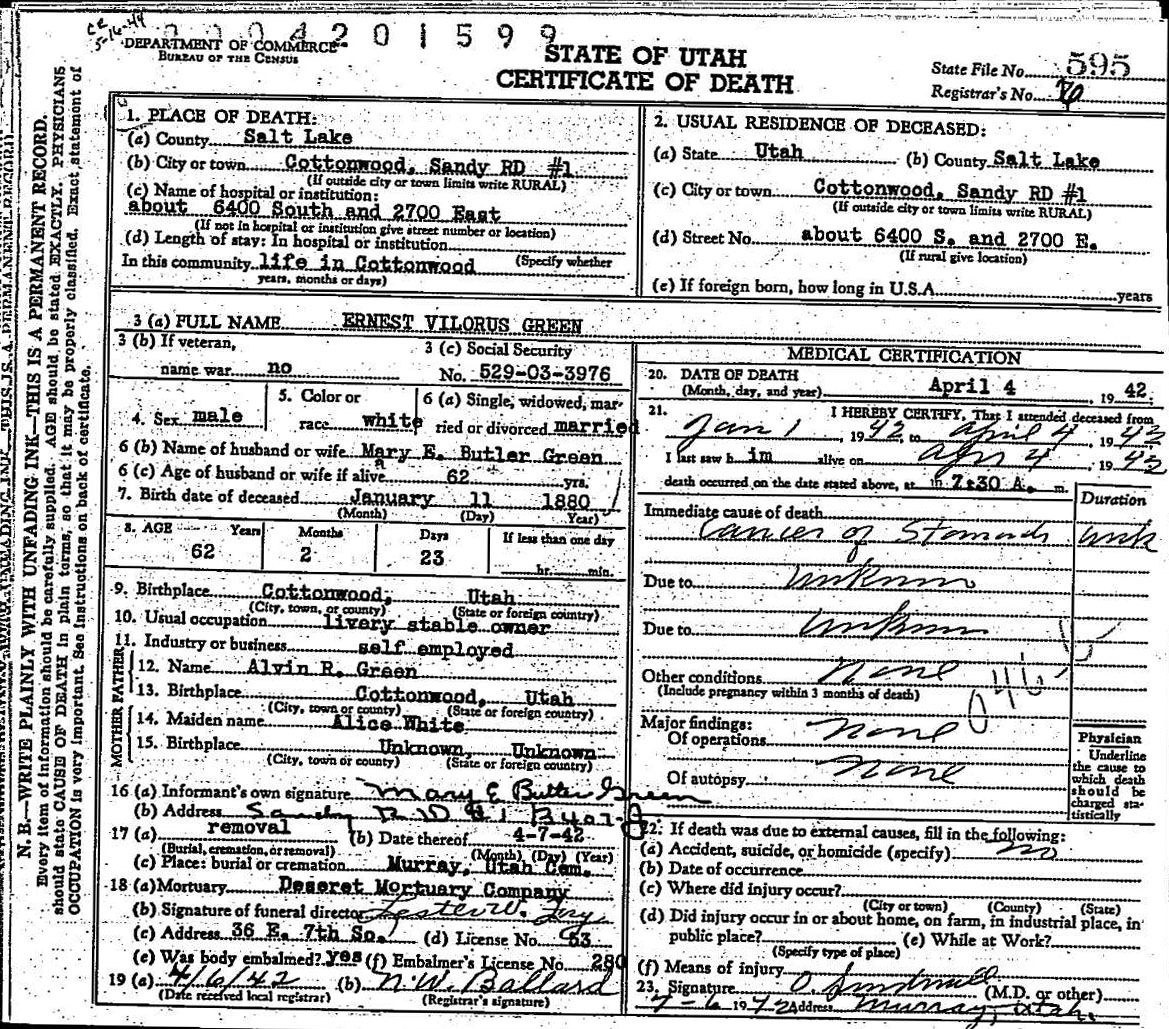 CR
5-16-44
0 0 0 4 2 0 1 5 9 9
DEPARTMENT OF COMMERCE
BUREAU OF THE CENSUS
STATE OF UTAH
CERTIFICATE OF DEATH
State File No. 595
Registrar's No. 76
N. B.—WRITE PLAINLY WITH UNFADING INK—THIS IS A PERMANENT RECORD.
Every item of information should be carefully supplied. AGE should be stated EXACTLY. PHYSICIANS
should state CAUSE OF DEATH in plain terms, so that it may be properly classified. Exact statement of
OCCUPATION is very important. See instructions on back of certificate.
1. PLACE OF DEATH:
(a) County Salt Lake
(b) City or town Cottonwood, Sandy RD #1
(If outside city or town limits write RURAL)
(c) Name of hospital or institution:
about 6400 South and 2700 East
(If not in hospital or institution give street number or location)
(d) Length of stay: In hospital or institution
In this community life in Cottonwood (Specify whether
years, months or days)
2. USUAL RESIDENCE OF DECEASED:
(a) State Utah (b) County Salt Lake
(c) City or town Cottonwood, Sandy RD #1
(If outside city or town limits write RURAL)
(d) Street No. about 6400 S. and 2700 E.
(If rural give location)
(e) If foreign born, how long in U.S.A. years
3 (a) FULL NAME ERNEST VILORUS GREEN
3 (b) If veteran,
name war no
3 (c) Social Security
No. 529-03-3976
4. Sex male
5. Color or
race white
6 (a) Single, widowed, mar-
ried or divorced married
6 (b) Name of husband or wife Mary E. Butler Green
6 (c) Age of husband or wife if alive 62 yrs.
7. Birth date of deceased January 11 1880
(Month) (Day) Year)
8. AGE Years Months Days If less than one day
62 2 23
hr. min.
9. Birthplace Cottonwood, Utah
(City, town, or county) (State or foreign country)
10. Usual occupation livery stable owner
11. Industry or business self employed
FATHER
12. Name Alvin R. Green
13. Birthplace Cottonwood, Utah
(City, town or county) (State or foreign country)
MOTHER
14. Maiden name Alice White
15. Birthplace Unknown, Unknown
(City, town or county) (State or foreign country)
16 (a) Informant's own signature Mary E Butler Green
(b) Address Sandy R.D #1 B
17 (a) removal (b) Date thereof 4-7-42
(Burial, cremation, or removal) (Month) (Day) (Year)
(c) Place: burial or cremation Murray, Utah Cem.
18 (a) Mortuary Deseret Mortuary Company
(b) Signature of funeral director Lester W.
(c) Address 36 E. 7th So. (d) License No. 53
(e) Was body embalmed? yes (f) Embalmer's License No. 280
19 (a) 4/6/42 (b) N.W. Ballard
(Date received local registrar) (Registrar's signature)
MEDICAL CERTIFICATION
20. DATE OF DEATH
(Month, day, and year) April 4 19 42.
21. I HEREBY CERTIFY, That I attended deceased from
Jan 1, 1942, to April 4, 1942
I last saw h im alive on Apr 4, 1942
death occurred on the date stated above, at 7:30 A. m.
Duration
Immediate cause of death
Cancer of Stomach unk
Due to Unknown
Due to Unknown
Other conditions None
(Include pregnancy within 3 months of death)
046
Major findings:
Of operations None
Of autopsy None
Physician
Underline
the cause to
which death
should be
charged sta-
tistically
22. If death was due to external causes, fill in the following:
(a) Accident, suicide, or homicide (specify) no
(b) Date of occurrence
(c) Where did injury occur?
(City or town) (County) (State)
(d) Did injury occur in or about home, on farm, in industrial place, in
public place? (e) While at Work?
(Specify type of place)
(f) Means of injury
23. Signature O. (M.D. or other)
1942 Address Murray, Utah.